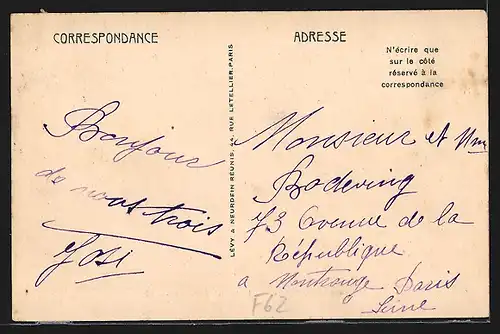 CORRESPONDANCE
ADRESSE
N'écrire que
sur le côté
réservé à la
correspondance
LÉVY & NEURDEIN RÉUNIS, 44, RUE LETELLIER, PARIS
Bonjour
de nous trois
Josi
Monsieur et Mm
Bodeving
73 Avenue de la
République
a Montrouge Paris
Seine
F62